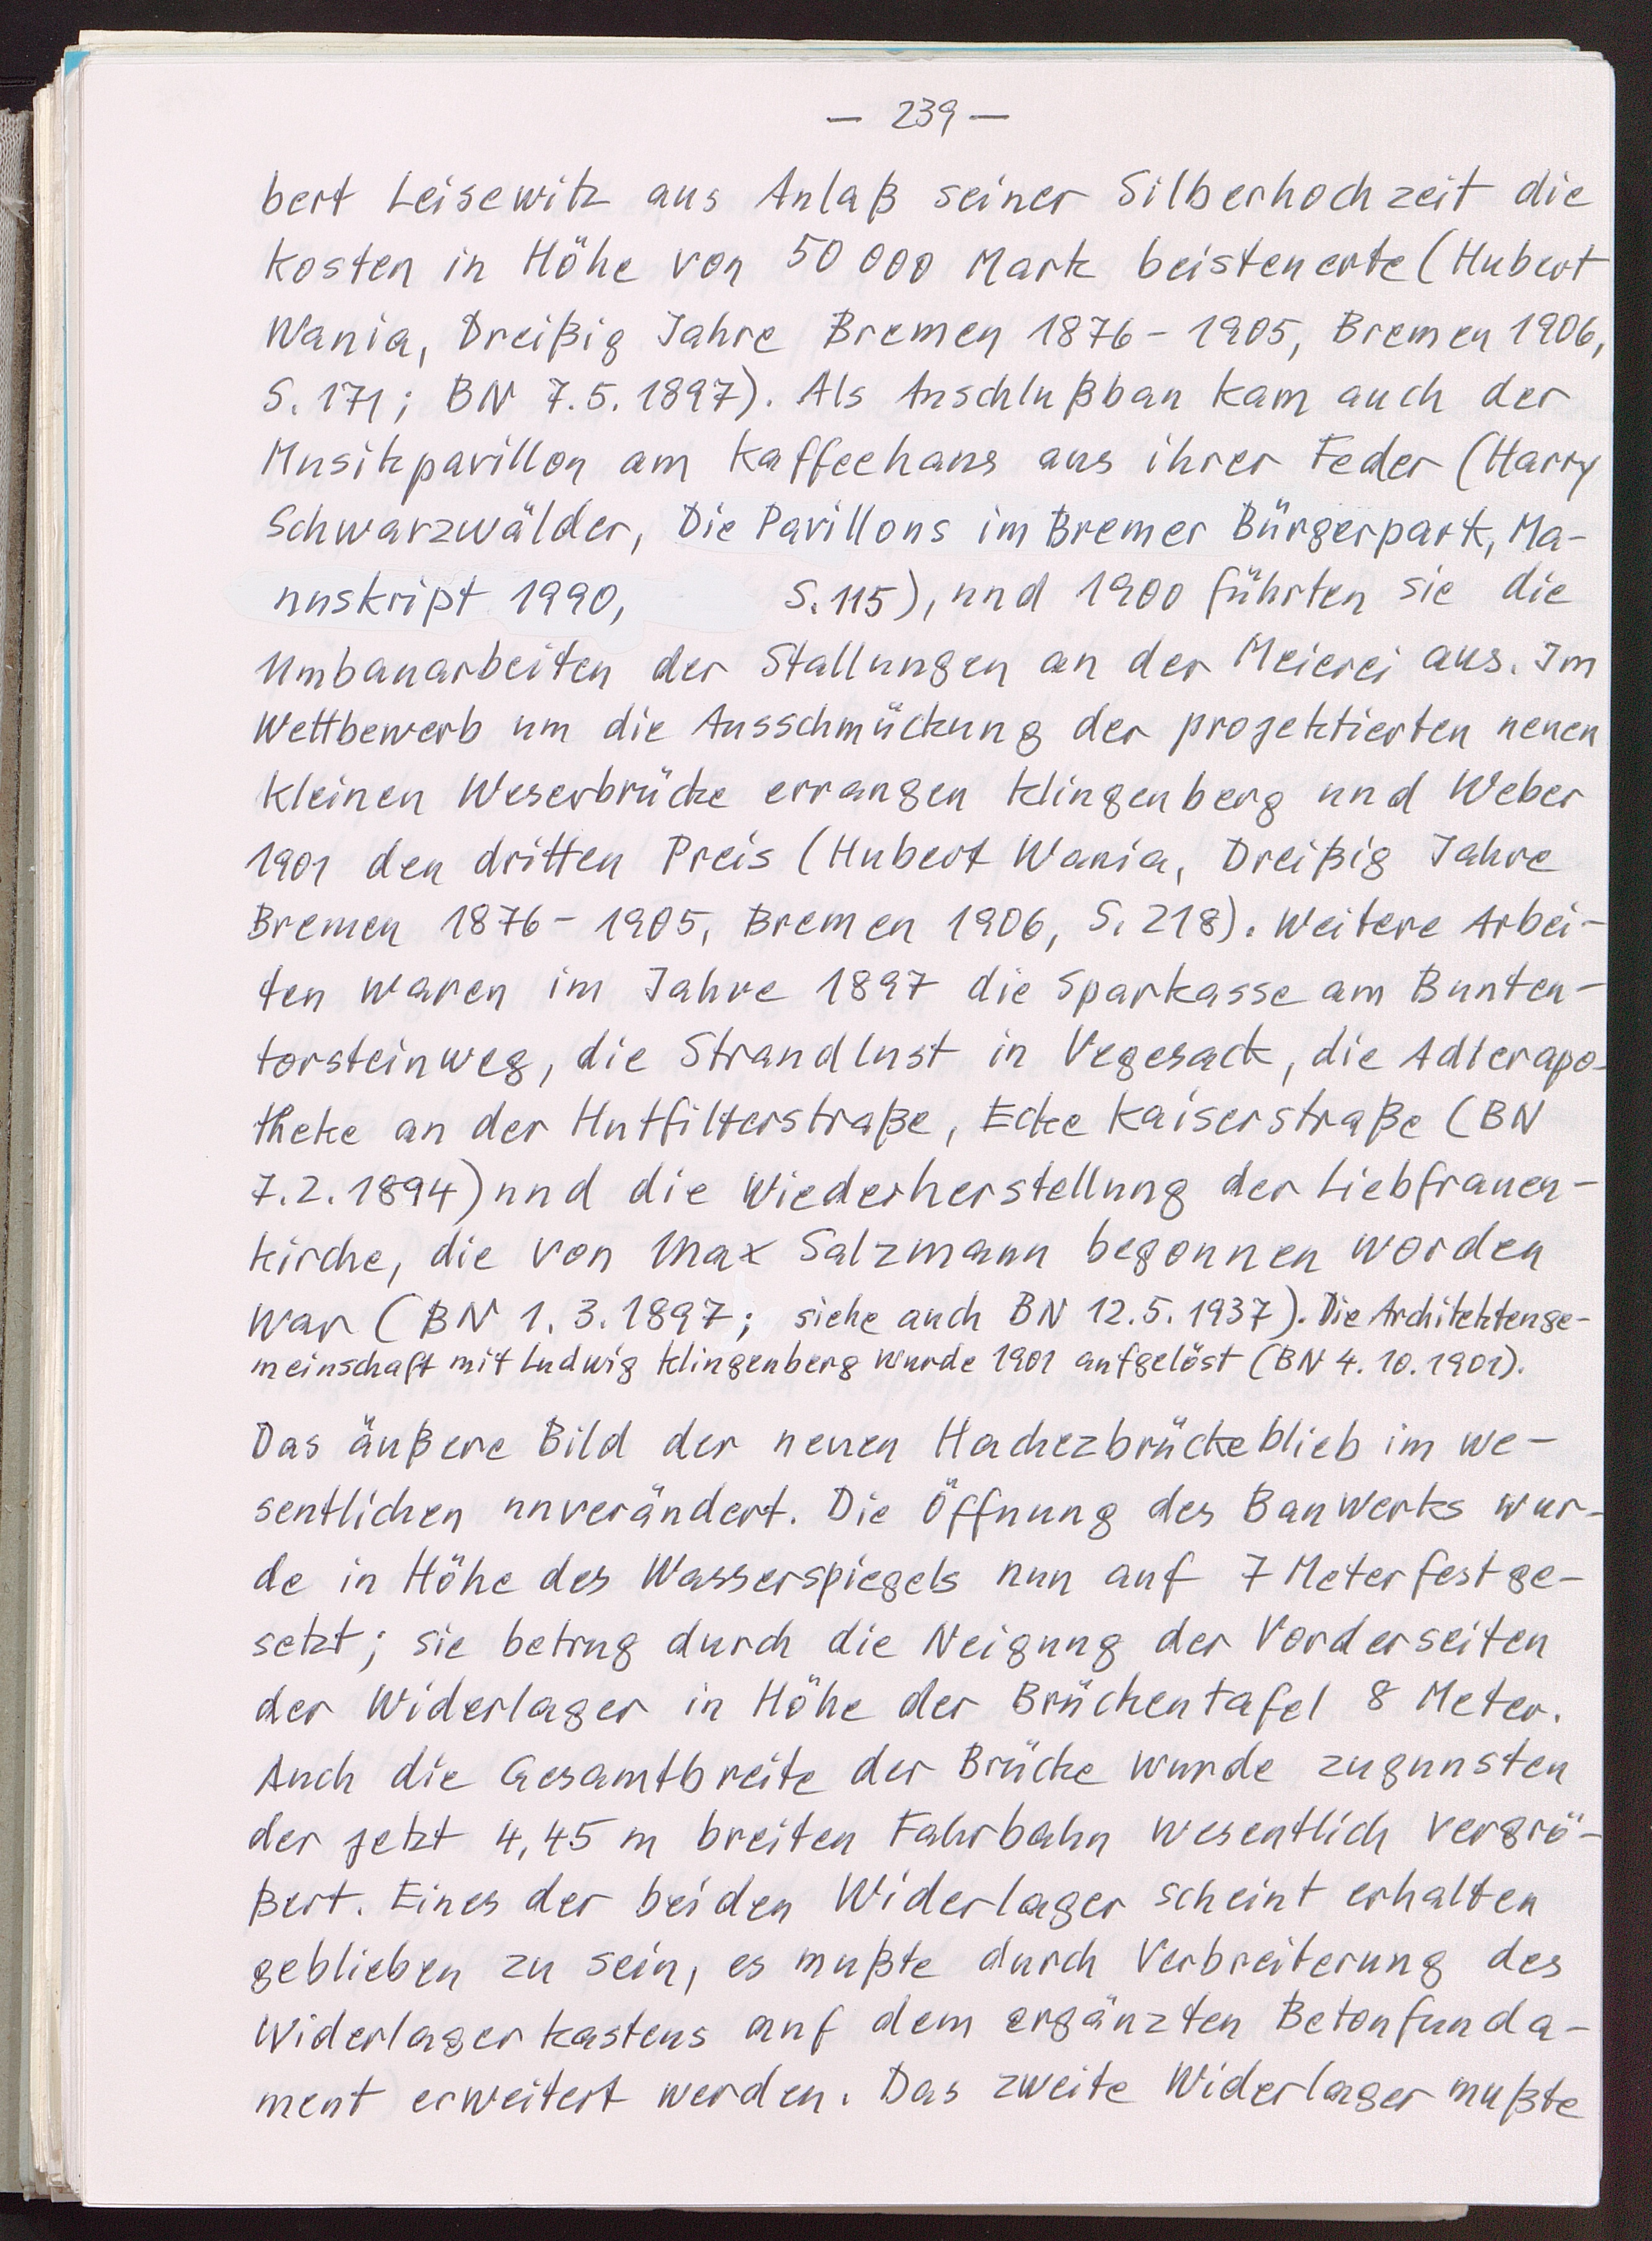 — 239 —
bert Leisewitz aus Anlaß seiner Silberhochzeit die
Kosten in Höhe von 50 000 Mark beisteuerte (Hubert
Wania, Dreißig Jahre Bremen 1876 - 1905, Bremen 1906,
S. 171; BN 7.5.1897). Als Anschlußbau kam auch der
Musikpavillon am Kaffeehaus aus ihrer Feder (Harry
Schwarzwälder, Die Pavillons im Bremer Bürgerpark, Ma-
nuskript 1990, S. 115), und 1900 führten sie die
Umbauarbeiten der Stallungen an der Meierei aus. Im
Wettbewerb um die Ausschmückung der projektierten neuen
kleinen Weserbrücke errangen Klingenberg und Weber
1901 den dritten Preis (Hubert Wania, Dreißig Jahre
Bremen 1876 - 1905, Bremen 1906, S. 218). Weitere Arbei-
ten waren im Jahre 1897 die Sparkasse am Bunten-
torsteinweg, die Strandlust in Vegesack, die Adlerapo-
theke an der Hutfilterstraße, Ecke Kaiserstraße (BN
7.2.1894) und die Wiederherstellung der Liebfrauen-
kirche, die von Max Salzmann begonnen worden
war (BN 1.3.1897; siehe auch BN 12.5.1937). Die Architektenge-
meinschaft mit Ludwig Klingenberg wurde 1901 aufgelöst (BN 4.10.1901).
Das äußere Bild der neuen Hachezbrücke blieb im we-
sentlichen unverändert. Die Öffnung des Bauwerks wur-
de in Höhe des Wasserspiegels nun auf 7 Meter festge-
setzt; sie betrug durch die Neigung der Vorderseiten
der Widerlager in Höhe der Brückentafel 8 Meter.
Auch die Gesamtbreite der Brücke wurde zugunsten
der jetzt 4,45 m breiten Fahrbahn wesentlich vergrö-
ßert. Eines der beiden Widerlager scheint erhalten
geblieben zu sein, es mußte durch Verbreiterung des
Widerlagerkastens auf dem ergänzten Betonfunda-
ment erweitert werden. Das zweite Widerlager mußte